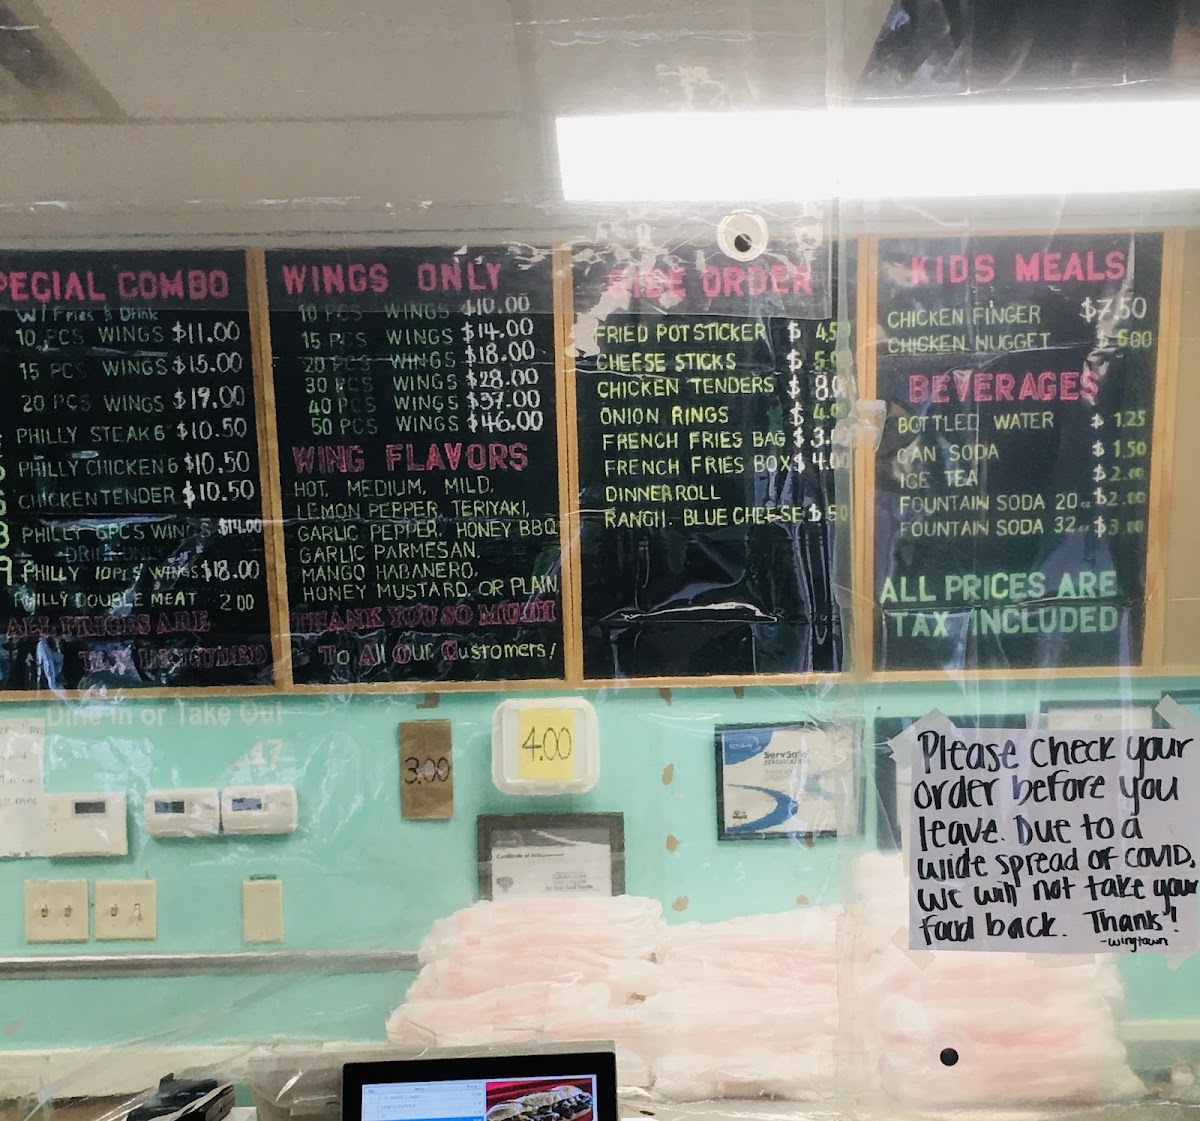 PECIAL COMBO
W/ Fries & Drink
10 PCS WINGS $11.00
15 PCS WINGS $15.00
20 PCS WINGS $19.00
PHILLY STEAK 6 $10.50
PHILLY CHICKEN 6 $10.50
CHICKEN TENDER $10.50
PHILLY 6PCS WINGS $14.00
DRINK ONLY
PHILLY 10PCS WINGS $18.00
PHILLY DOUBLE MEAT 2 00
ALL PRICES ARE
TAX INCLUDED
WINGS ONLY
10 PCS WINGS $10.00
15 PCS WINGS $14.00
20 PCS WINGS $18.00
30 PCS WINGS $28.00
40 PCS WINGS $37.00
50 PCS WINGS $46.00
WING FLAVORS
HOT, MEDIUM, MILD,
LEMON PEPPER, TERIYAKI,
GARLIC PEPPER, HONEY BBQ
GARLIC PARMESAN,
MANGO HABANERO,
HONEY MUSTARD, OR PLAIN
THANK YOU SO MUCH
To All Our Customers!
SIDE ORDER
FRIED POTSTICKER $ 4.50
CHEESE STICKS $ 5.0
CHICKEN TENDERS $ 8.0
ONION RINGS $ 4.0
FRENCH FRIES BAG $ 3.
FRENCH FRIES BOX $ 4.0
DINNER ROLL
RANCH. BLUE CHEESE $ 50
KIDS MEALS
CHICKEN FINGER $7.50
CHICKEN NUGGET $ 500
BEVERAGES
BOTTLED WATER $ 1.25
CAN SODA $ 1.50
ICE TEA $2.00
FOUNTAIN SODA 20 $2.00
FOUNTAIN SODA 32 $3.00
ALL PRICES ARE
TAX INCLUDED
Dine In or Take Out
.47
3.00
4.00
ServSafe
Please check your
order before you
leave. Due to a
wide spread of COVID,
we will not take your
food back. Thanks!
-wingtown